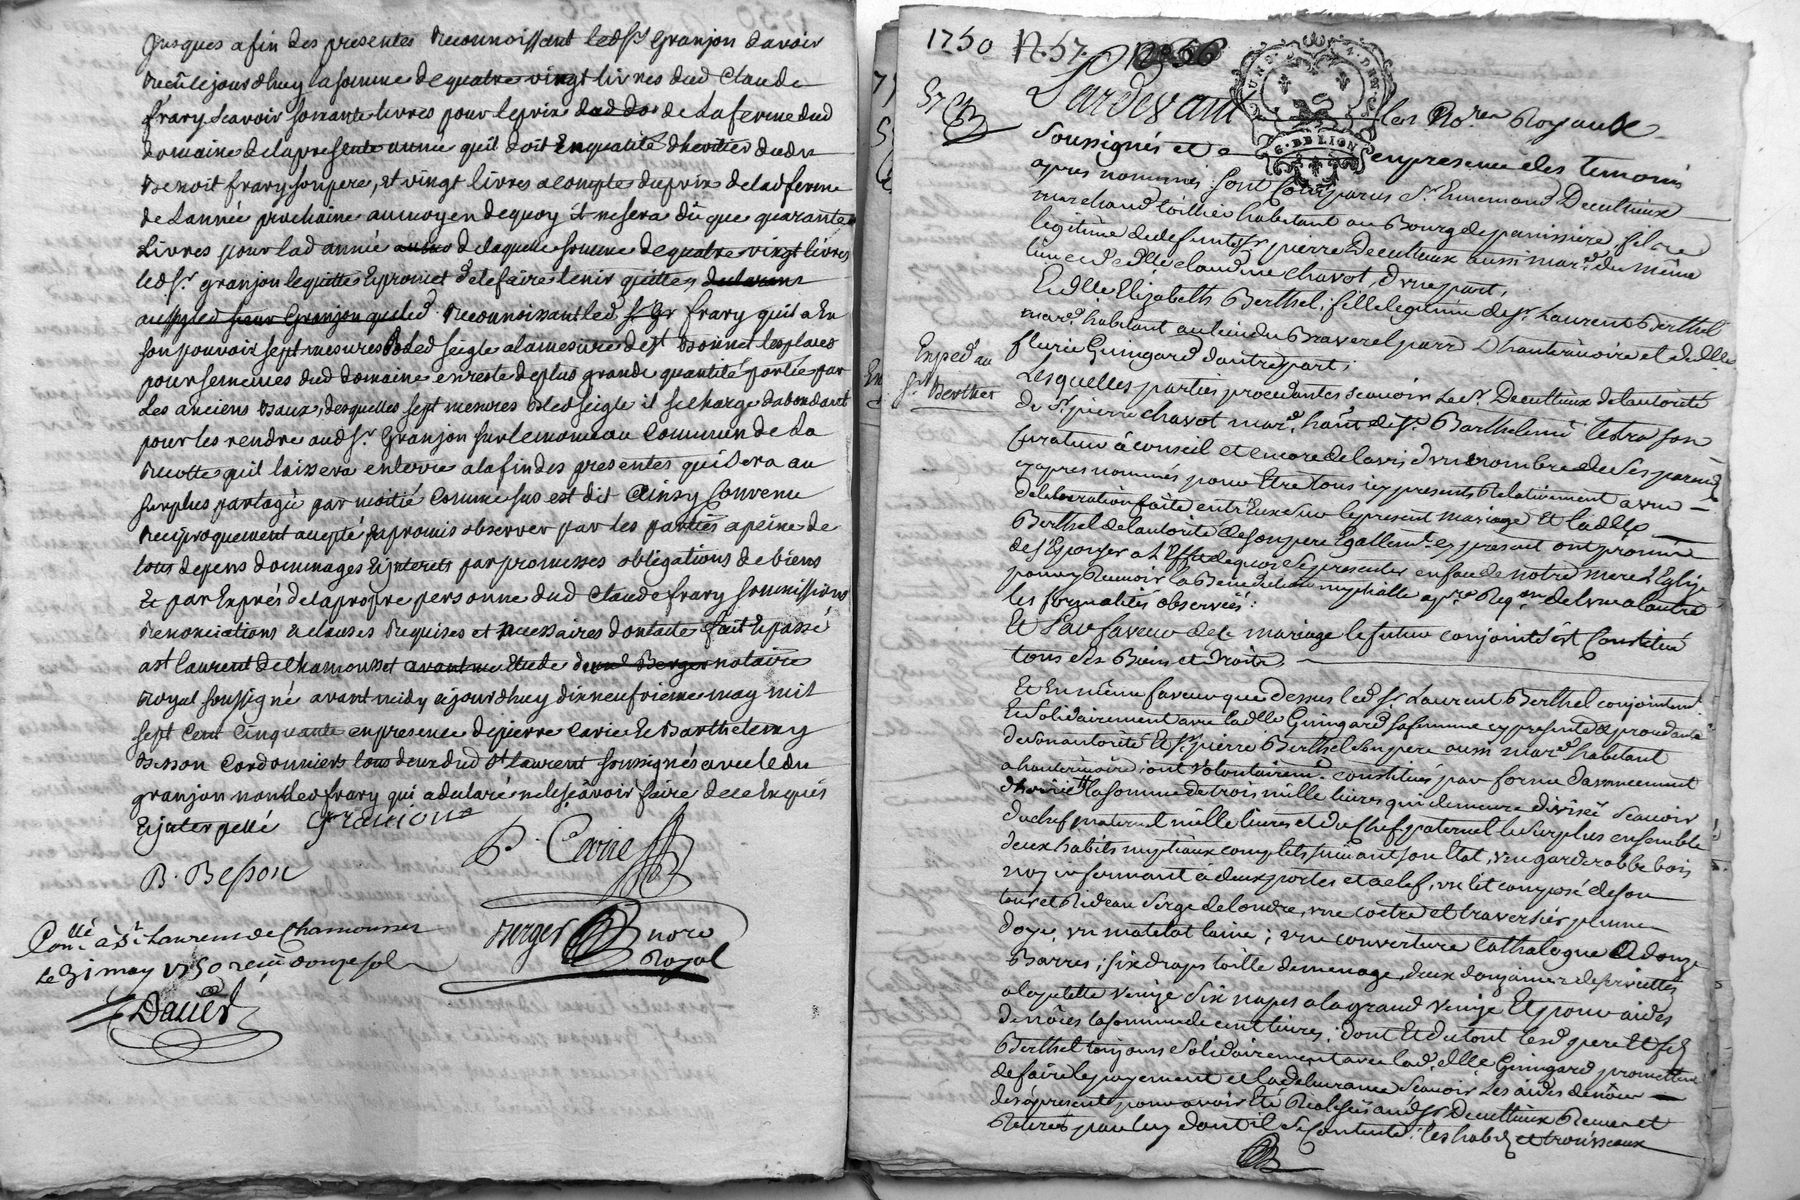 Jusques a fin des presentes Reconnoissant led Sr Granjon davoir
Recû cejourdhuy la somme de quatre vingt livres dud Claude
frary scavoir soixante livres pour le prix de la ferme dud
domaine de la presente année quil doit En qualité dheritier dudit
Benoit frary son pere, et vingt livres a compte du prix de lad ferme
de Lannée prochaine au moyen de quoy il ne sera dû que quarante
Livres pour lad année de laquelle somme de quatre vingt livres
led Sr granjon le quitte Et promet de le faire tenir quitte
Reconnoissant led Sr frary quil a En
son pouvoir sept mesures Bled seigle a la mesure de St Bonnet les places
pour semences dud domaine en reste de plus grande quantité portée par
Les anciens Baux, desquelles sept mesures Bled seigle il se charge dabondant
pour les rendre aud Sr Granjon sur le monceau Commun de La
Recolte quil laissera en terre a la fin des presentes qui sera au
surplus partagé par moitié Comme sus est dit Ainsy Convenu
Reciproquement accepté Et promis observer par les parties a peine de
tous depens dommages Et jnterets par promesses obligations de biens
Et par Exprés de la propre personne dud Claude frary soumissions
Renonciations & clauses Requises et Necessaires dont acte fait Et passé
a st laurent de chamousset notaire
Royal soussigné avant midy cejourdhuy dixneufvieme may mil
sept Cent Cinquante en presence de pierre Carie Et Barthelemy
Besson Cordonniers tous deux dud St Laurent soussignés avec led
granjon non led frary qui a declaré ne le sçavoir faire de ce Enquis
Et jnterpellé Granjon
P. Carie
B. Besson
Berger nore
Royal
Conllé à St Laurent de Chamousset
le 31 may 1750 recû douze sols
Dauer
1750 N.57.
57
Pardevant les Nores Royaux
soussignés et en presence des temoins
apres nommés sont Comparus Sr Ennemond Decultieux
marchand toillier habitant au Bourg de panissiere, fils
legitime de defunt Sr pierre Decultieux aussi mard du même
lieu et de dlle claudine chavot, d'une part,
Et dlle Elizabeth Berthel, fille legitime de Sr Laurent Berthel
mard habitant au lieu du Braverel parr D'hauterivoire et de dlle
fleurie Guingard dautre part,
Exped au
Sr Berthel
Lesquelles parties procedantes scavoir Le Sr Decultieux de lautorité
de Sr pierre chavot mard habt de St Barthelemi Lestra son
curateur à conseil et encore de lavis d'un nombre de ses parents
apres nommés pour Etre tous icy presents Relativement a une
deliberation faite entr'Eux sur le present mariage Et lad dlle
Berthel de lautorité de son pere Egallemt cy present ont promis
de s'Epouser a L'Effet de quoy se presenter en face de notre mere L'Eglise
pour y Recevoir la Benediction nuptialle apres Reqon de lun a lautre
les formalités observées.
Et En faveur de ce mariage le futur conjoint s'est Constitué
tous ses Biens et droits
Et En même faveur que dessus led Sr Laurent Berthel conjointemt
Et solidairement avec lad dlle Guingard sa femme cy presente & procedante
de son autorité Et Sr pierre Berthel son pere aussi mard habitant
a hauterivoire, ont volontairemt constitués par forme d'avancement
d'hoirie la somme de trois mille livres qui demeure divisée scavoir
du chef maternel mille livres et du chef paternel le surplus ensemble
deux habits nuptiaux complets suivant son Etat, une garderobbe bois
noyer fermant a deux portes et a clef, un lit composé de son
tour et Rideau serge de londre, une coëtre et traversier plume
d'oye, un matelat laine; une couverture Cathalogne a douze
Barres; six draps toille de menage, deux douzaines de serviettes
a la petite venize six napes a la grand venize Et pour aides
de nôces la somme de cent livres. dont Et du tout lesd pere Et fils
Berthel toujours solidairement avec lad dlle Guingard promettent
de faire le payement et la delivrance scavoir Les aides de nôces
des apresent pour avoir été Realisés aud Sr Decultieux Receu et
Retirés par luy dont il se contente. les habits et trousseaux